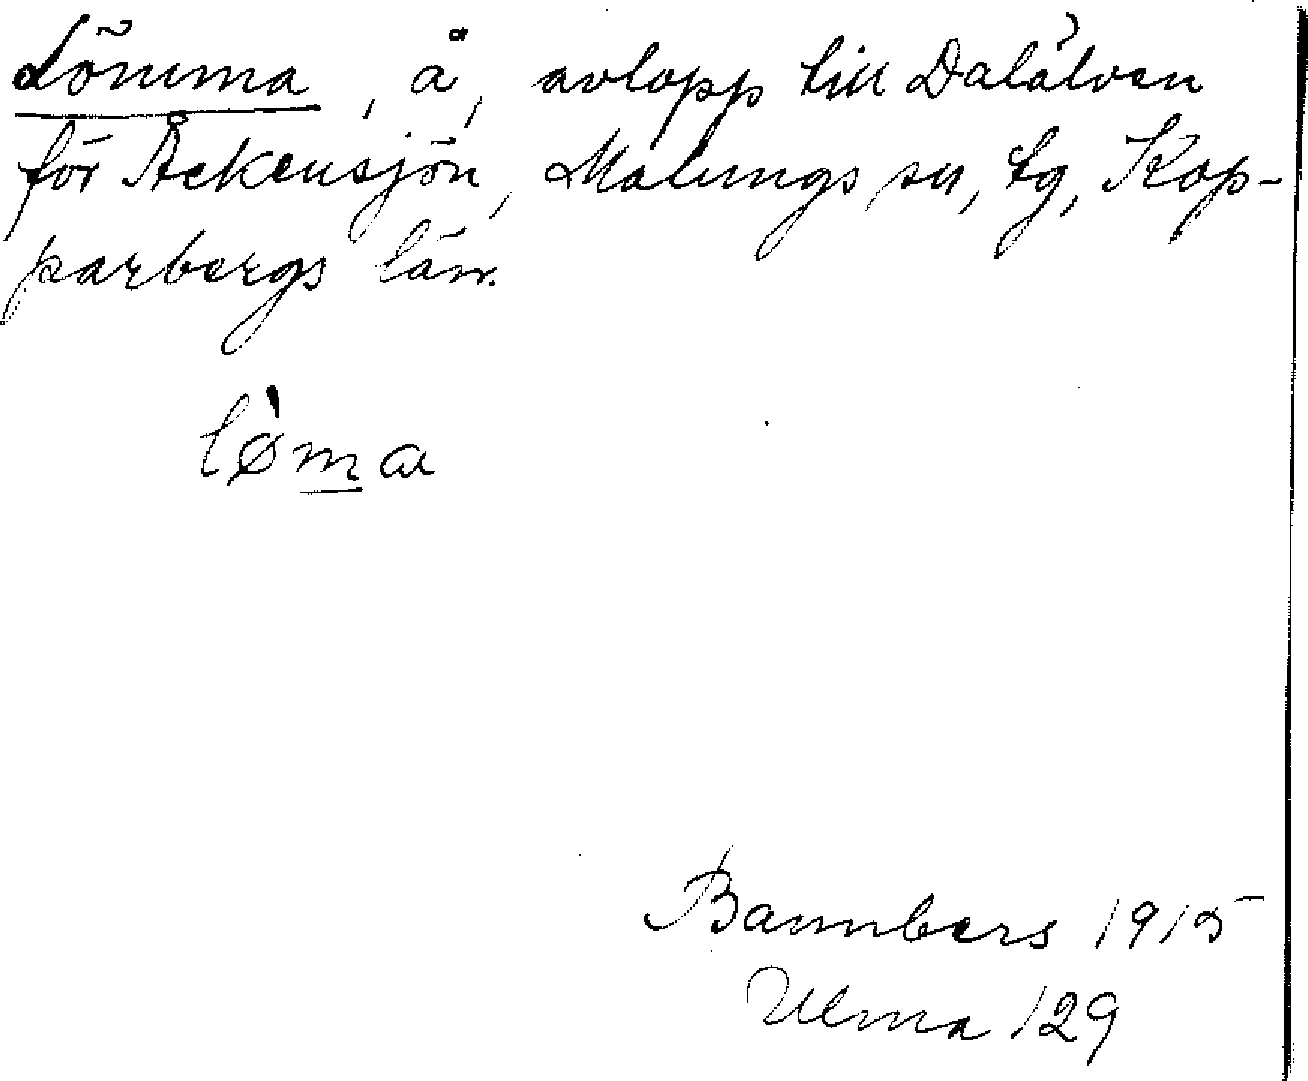 Lömma, å, avlopp till Dalälven
för Åckensjön, Malungs sn, tg, Kop-
parbergs län.
lø̀ma
Bannbers 1915
Ulma 129